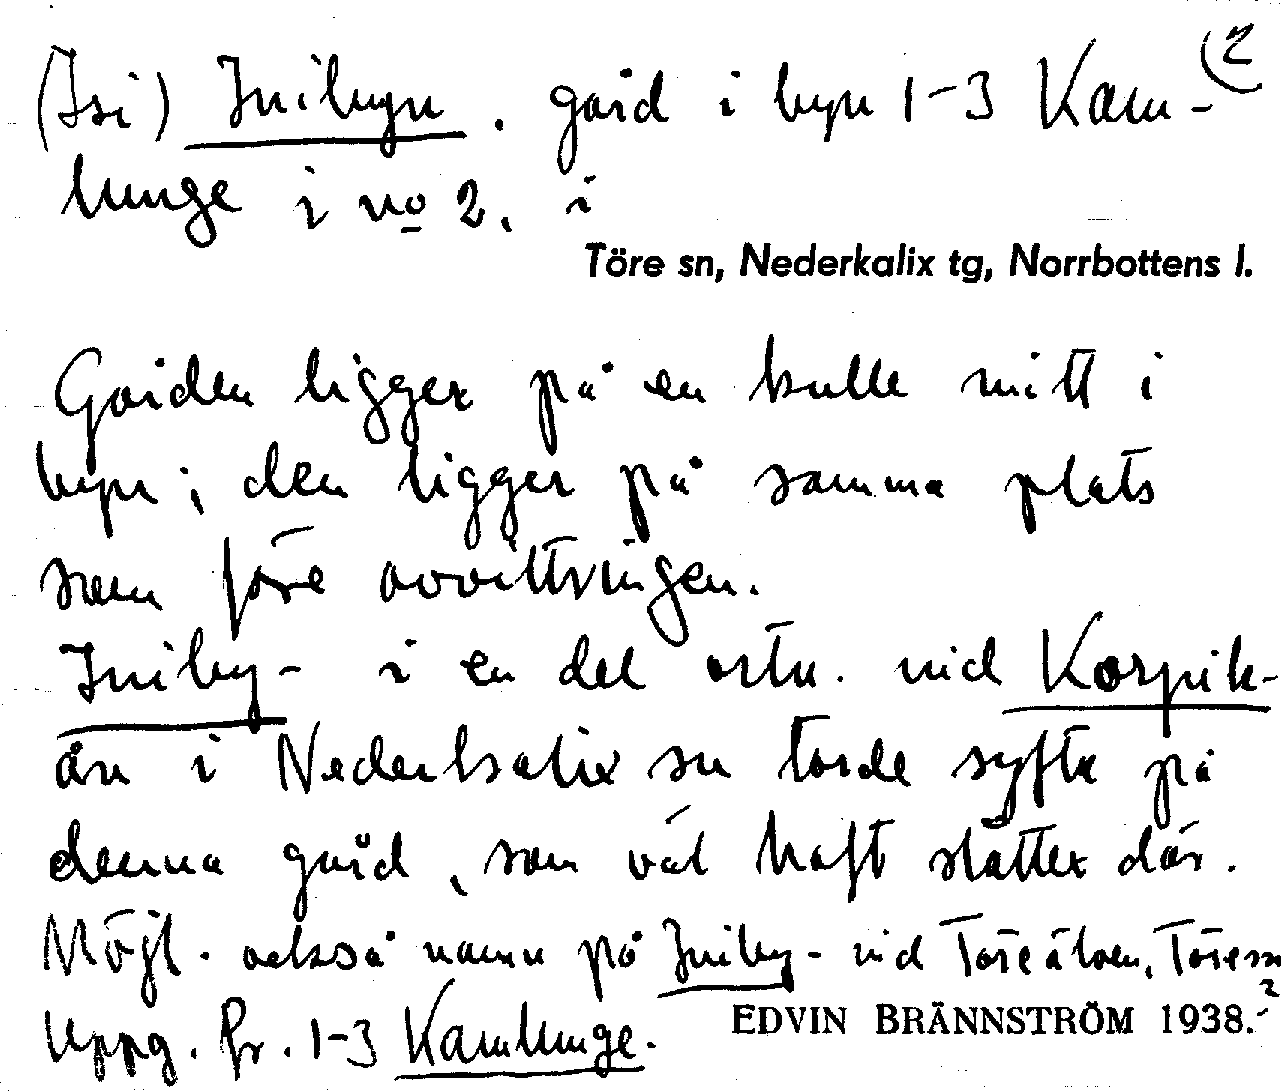 (Isi) Inibyn. gård i byn 1-3 Kam- (2
lunge i no 2. i
Töre sn, Nederkalix tg, Norrbottens l.
Gården ligger på en kulle mitt i
byn; den ligger på samma plats
som före avvittringen.
Iniby- i en del ortn. vid Korpik-
ån i Nederkalix sn torde syfta på
denna gård, som väl haft slåtter där.
Möjl. också namn på Iniby- vid Töreälven, Töre sn
Uppg. fr. 1-3 Kamlunge.
EDVIN BRÄNNSTRÖM 1938.